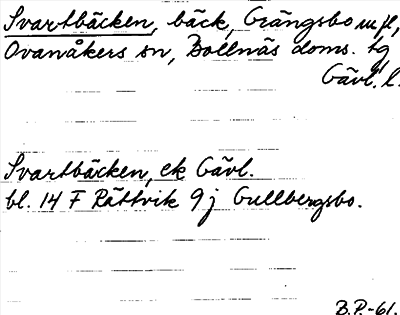 Svartbäcken, bäck, Grängsbo m fl,
Ovanåkers sn, Bollnäs doms. tg
Gävl. l.
Svartbäcken, ek Gävl.
bl. 14 F Rättvik 9 j Gullbergsbo.
B.P.-61.